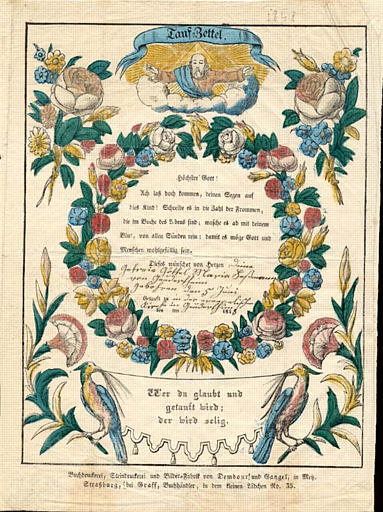 1848
Tauf-Zettel.
Höchster Gott!
Ach laß doch kommen, deinen Segen auf
dies Kind! Schreibe es in die Zahl der Frommen,
die im Buche des Lebens sind; wasche es ab mit deinem
Blut, von allen Sünden rein: damit es möge Gott und
Menschen wohlgefällig sein.
Dieses wünschet von Herzen
Maria
Geboren den Juni
Getauft in der
Kirch
den ten 184
Wer da glaubt und
getauft wird;
der wird selig.
Buchdruckerei, Steindruckerei und Bilder-Fabrik von Dembour und Gangel, in Metz.
Straßburg, bei Graff, Buchhändler, in dem kleinen Lädchen No. 35.